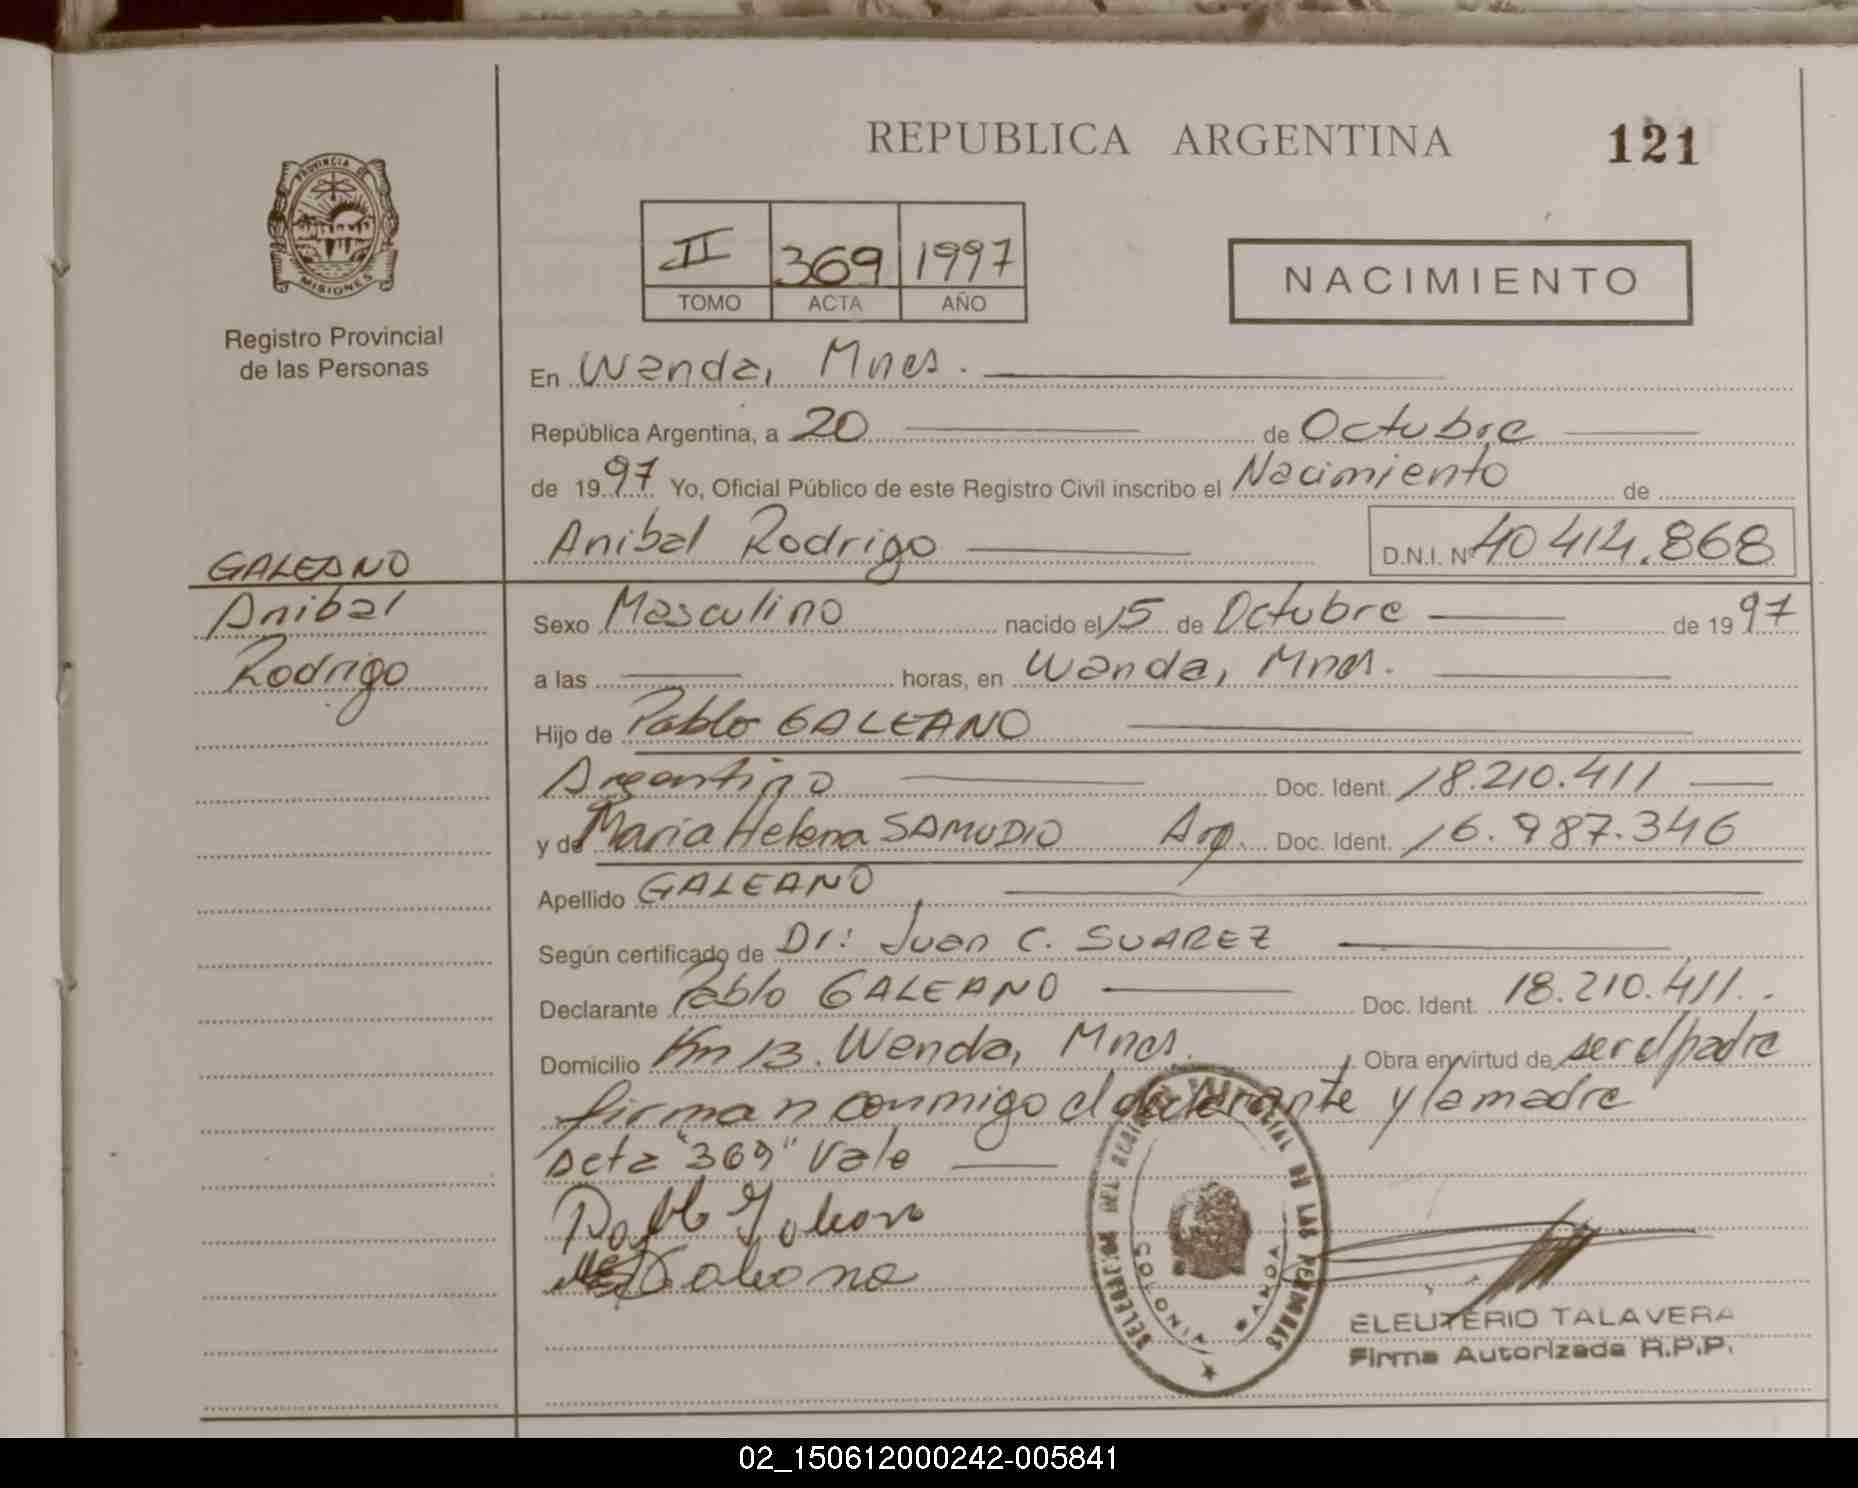 REPUBLICA ARGENTINA
121
PROVINCIA DE
MISIONES
Registro Provincial
de las Personas
II 369 1997
TOMO ACTA AÑO
NACIMIENTO
En Wanda, Mnes.
República Argentina, a 20 de Octubre
de 1997 Yo, Oficial Público de este Registro Civil inscribo el Nacimiento de
Anibal Rodrigo D.N.I. Nº 40 414.868
GALEANO
Anibal
Rodrigo
Sexo Masculino nacido el 15 de Octubre de 1997
a las horas, en Wanda, Mnes.
Hijo de Pablo GALEANO
Argentino Doc. Ident. 18.210.411
y de Maria Helena SAMUDIO Arg. Doc. Ident. 16.987.346
Apellido GALEANO
Según certificado de Dr: Juan C. SUAREZ
Declarante Pablo GALEANO Doc. Ident. 18.210.411.
Domicilio Km 13. Wanda, Mnes. Obra en virtud de ser el padre
firman conmigo el declarante y la madre
Acta "369" Vale
Pablo Galeano
DELEGACION DEL REGISTRO PROVINCIAL DE LAS PERSONAS
COLONIA WANDA
ELEUTERIO TALAVERA
Firma Autorizada R.P.P.
02_150612000242-005841